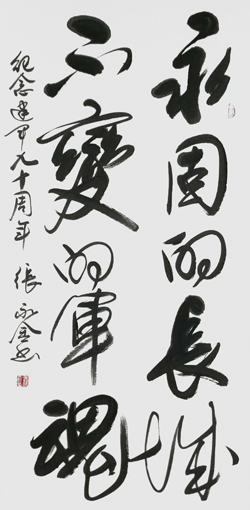 永固的長城
不變的軍魂
紀念建軍九十周年 張永金書